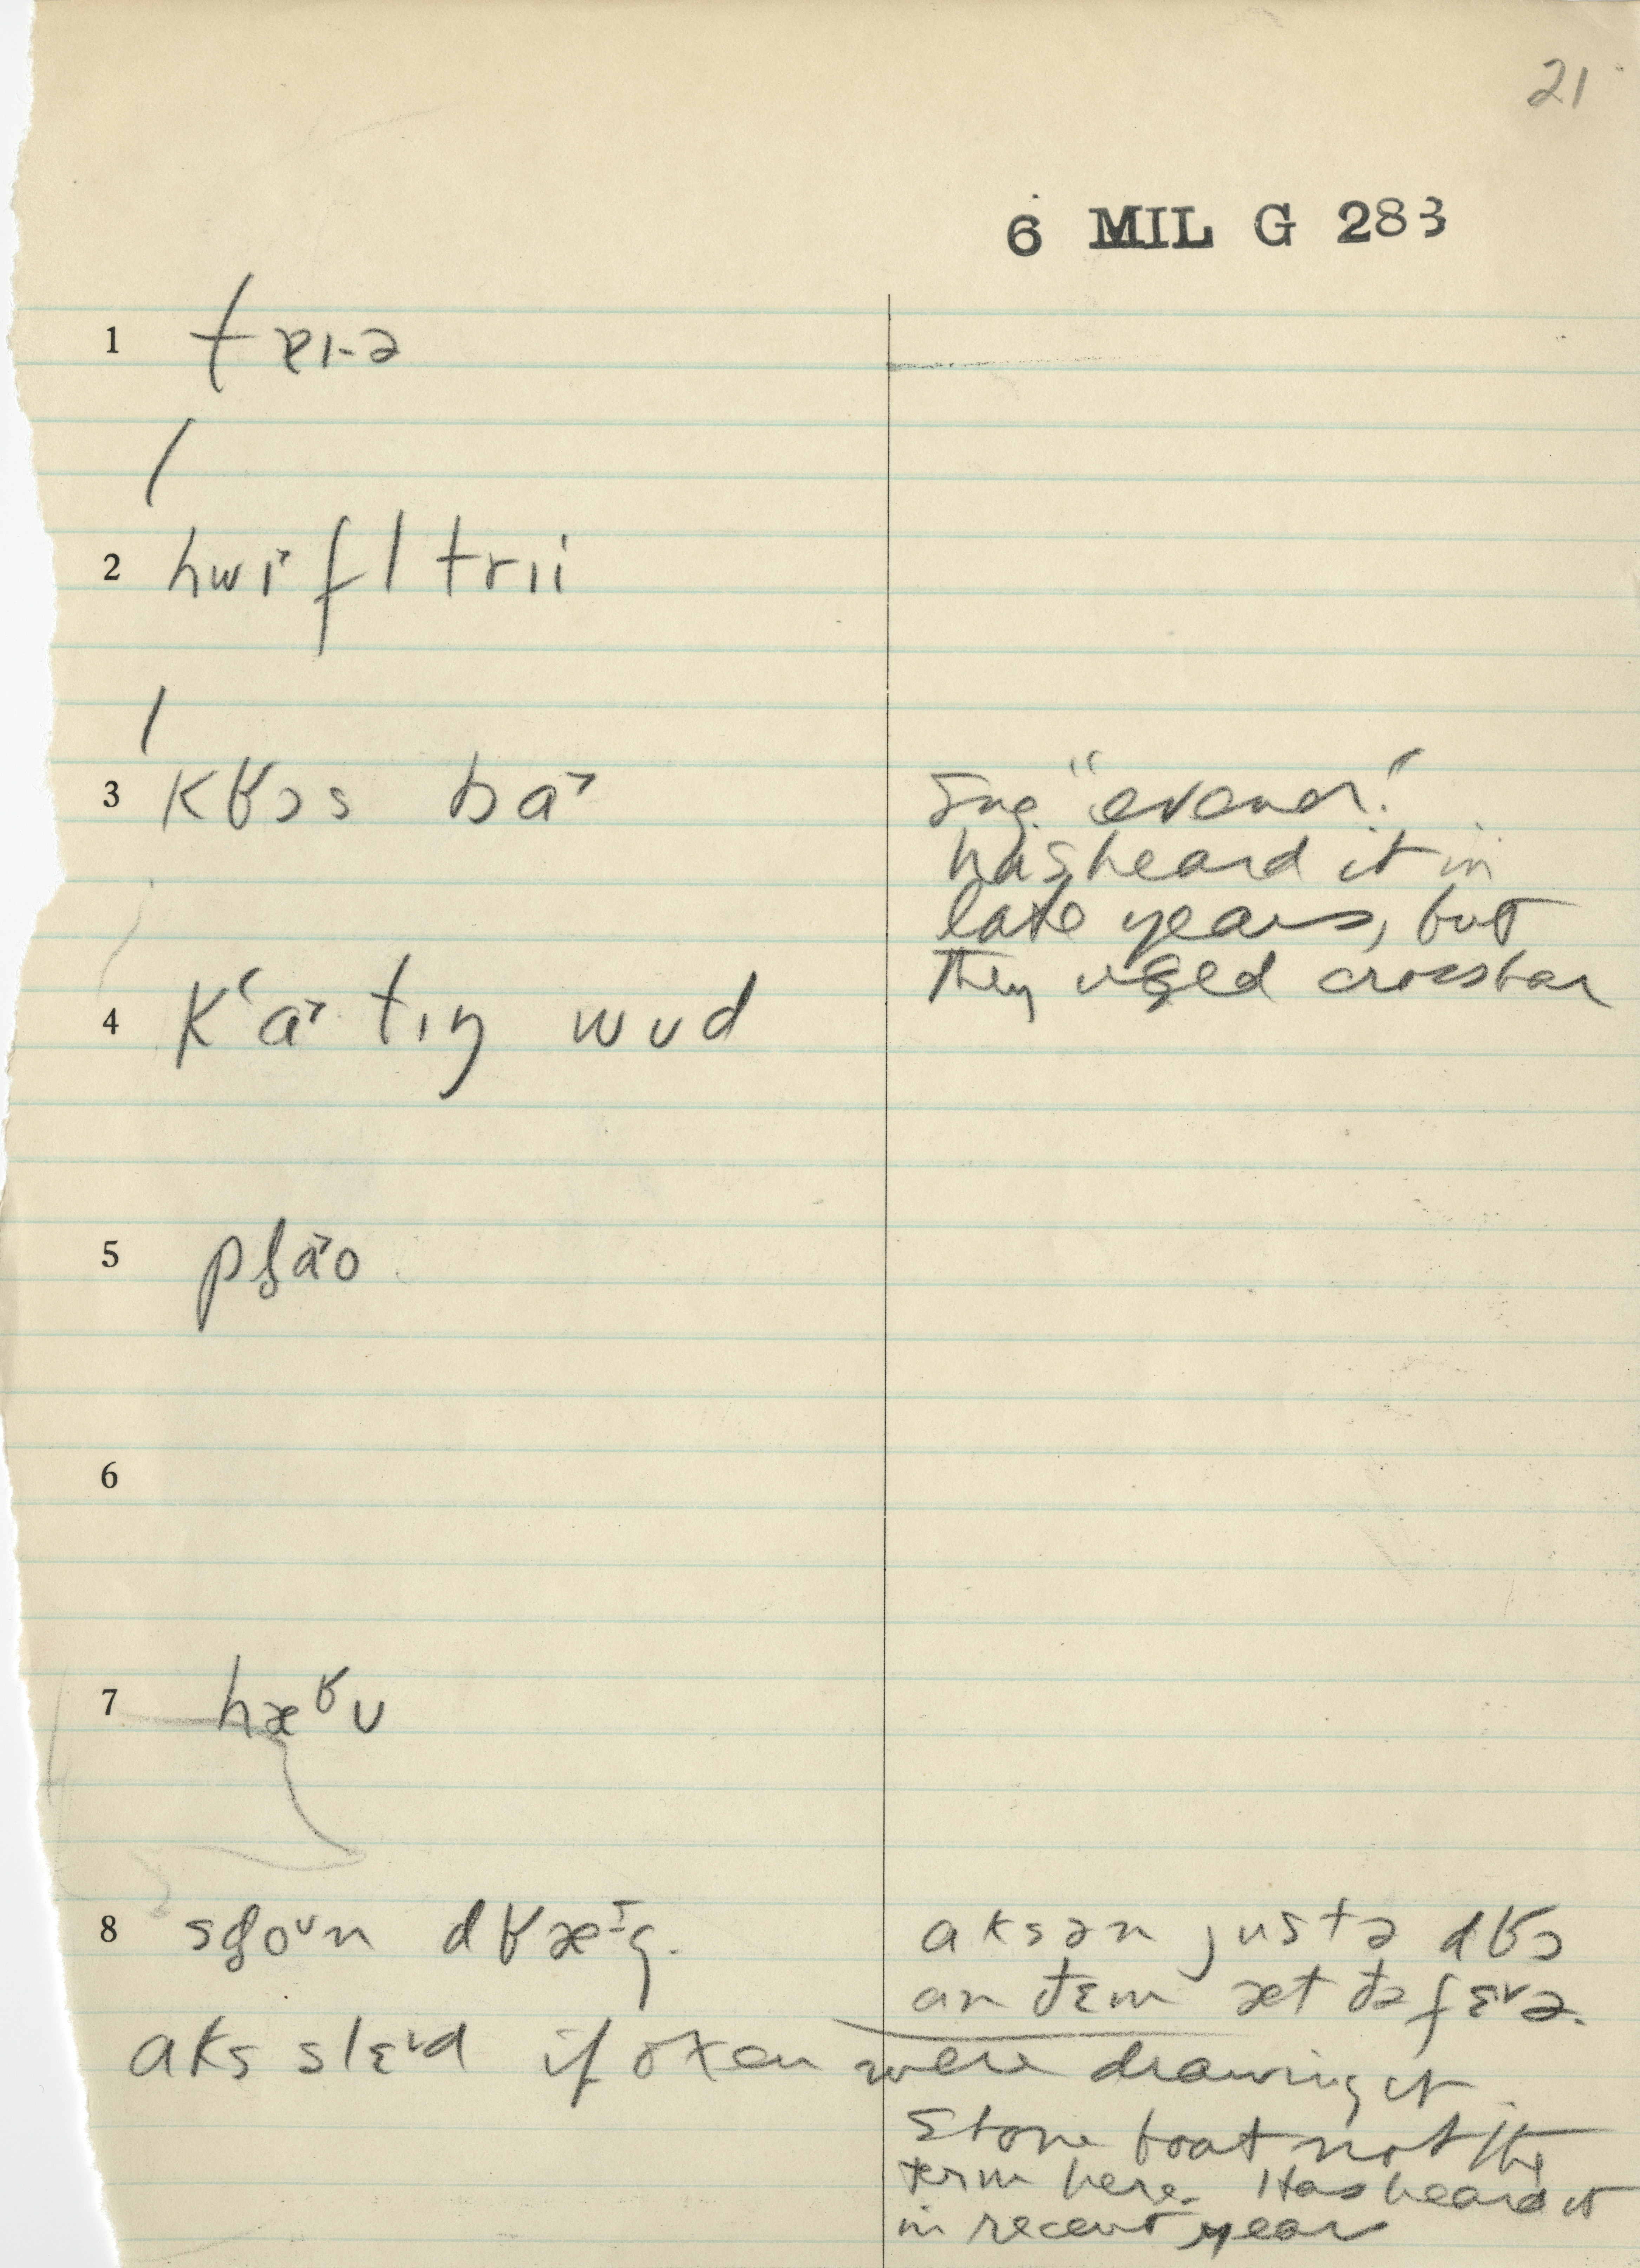 21
6 MIL G 283
1 tɐɪ-ə
2 hwɪ˃fl trii
3 kʁɔs ba˃
Sug. "evener."
has heard it in
late years, but
they used crossbar
4 kʻa˃tɪŋ wud
5 pɫa˃o
6
7 hæʁʊ
8 sɫoʊn dʁæɪg.
aksən justə dʁɔ
an ðɛm æt ðə fɛ˅ə.
aks slɛ˅d if oxen were drawing it.
Stone boat not the
term here. Has heard it
in recent years